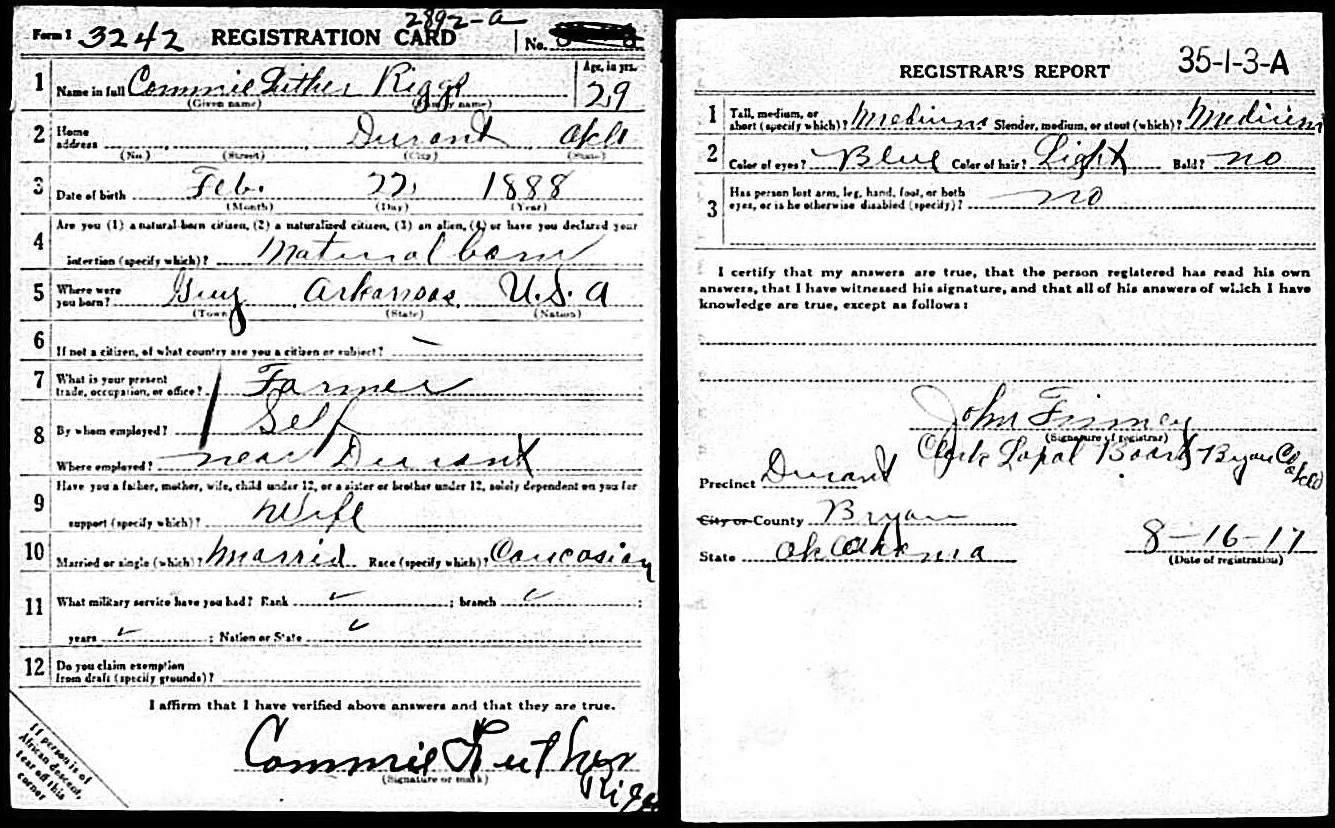 2892-a
Form 1 3242 REGISTRATION CARD No.
1 Name in full Commie Luther Riggs Age, in yrs. 29
(Given name) (Family name)
2 Home address Durant Okla
(No.) (Street) (City) (State)
3 Date of birth Feb. 22, 1888
(Month) (Day) (Year)
4 Are you (1) a natural-born citizen, (2) a naturalized citizen, (3) an alien, (4) or have you declared your
intention (specify which)? Natural born
5 Where were you born? Guy Arkansas. U.S.A
(Town) (State) (Nation)
6 If not a citizen, of what country are you a citizen or subject? -
7 What is your present trade, occupation, or office? Farmer
8 By whom employed? Self
Where employed? near Durant
9 Have you a father, mother, wife, child under 12, or a sister or brother under 12, solely dependent on you for
support (specify which)? Wife
10 Married or single (which)? Married Race (specify which)? Caucasian
11 What military service have you had? Rank ✓ ; branch ✓ ;
years ✓ ; Nation or State ✓
12 Do you claim exemption from draft (specify grounds)?
I affirm that I have verified above answers and that they are true.
Commie Luther
(Signature or mark)
Riggs
If person is of
African descent,
tear off this
corner
35-1-3-A
REGISTRAR'S REPORT
1 Tall, medium, or short (specify which)? Medium Slender, medium, or stout (which)? Medium
2 Color of eyes? Blue Color of hair? Light Bald? no
3 Has person lost arm, leg, hand, foot, or both
eyes, or is he otherwise disabled (specify)? no
I certify that my answers are true, that the person registered has read his own
answers, that I have witnessed his signature, and that all of his answers of which I have
knowledge are true, except as follows:
John Finney
(Signature of registrar)
Clerk Local Board Bryan Co Okla
Precinct Durant
City or County Bryan
State Oklahoma
8-16-17
(Date of registration)